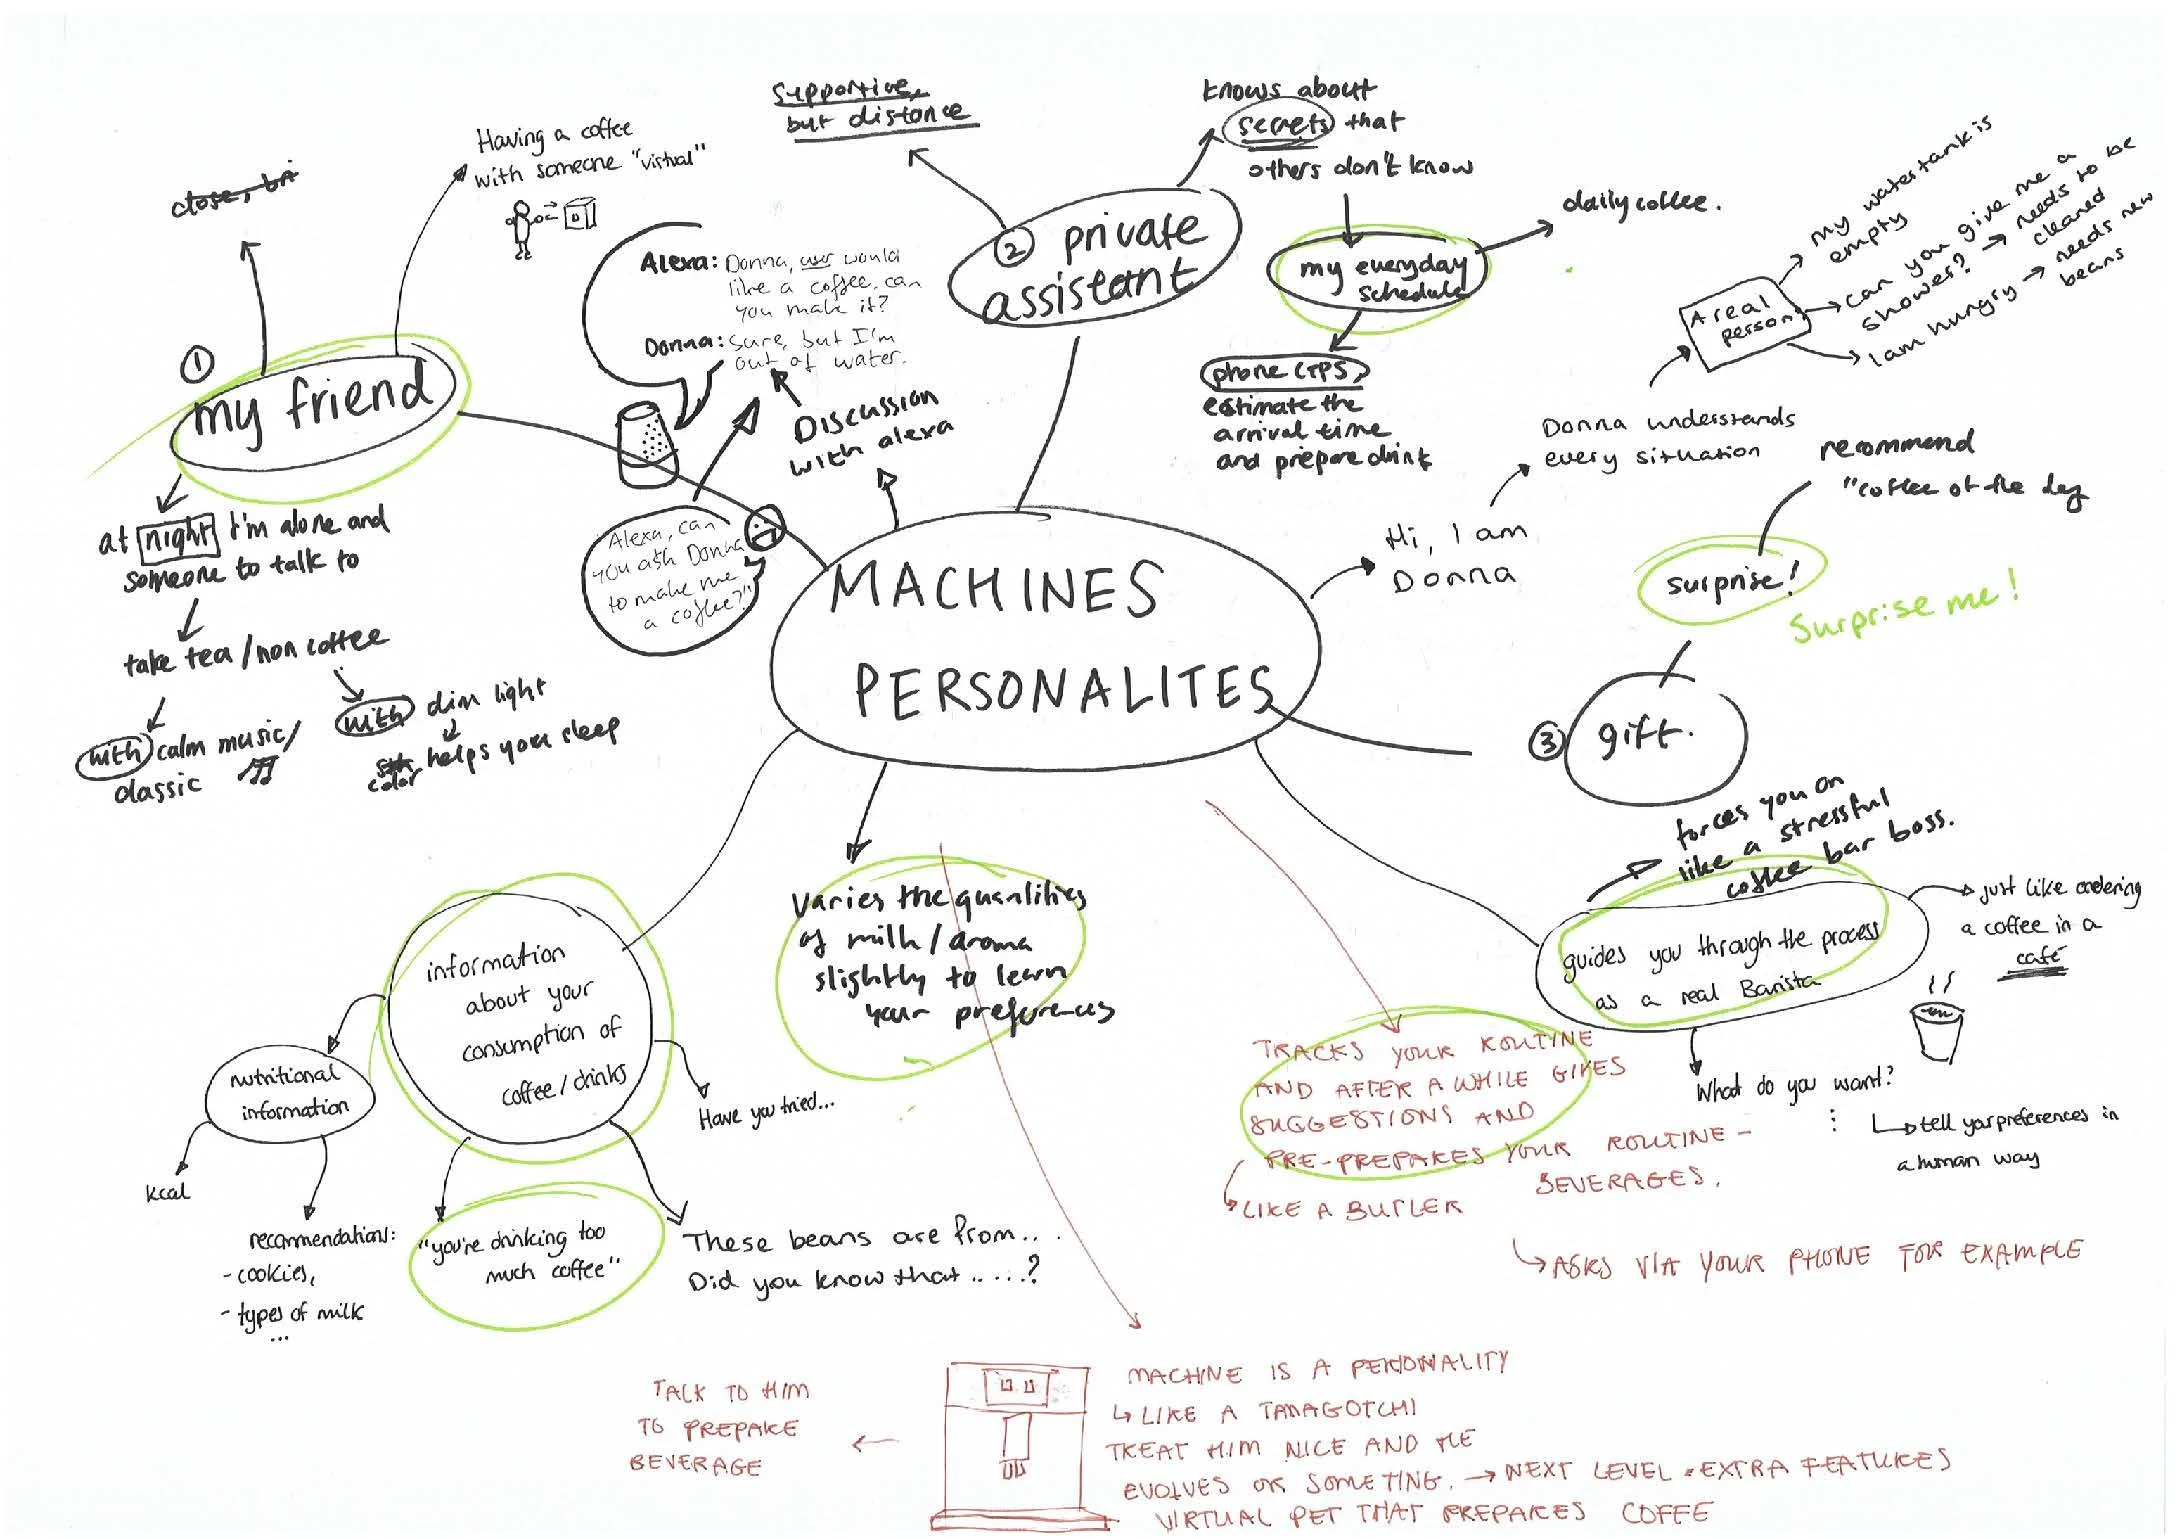 MACHINES
PERSONALITES
①
my friend
close,
Having a coffee
with someone "virtual"
at night I'm alone and
someone to talk to
take tea/non coffee
with calm music/
classic
with dim light
color helps your sleep
Alexa: Donna, user would
like a coffee, can
you make it?
Donna: Sure, but I'm
out of water.
Discussion
with alexa
Alexa, can
you ask Donna
to make me
a coffee?"
② private
assistant
supportive,
but distance
knows about
secrets that
others don't know
my everyday
schedule
daily coffee.
phone GPS
estimate the
arrival time
and prepare drink
Hi, I am
Donna
Donna understands
every situation
A real
person
my watertank is
empty
can you give me a
shower? → needs to be
cleaned
I am hungry → needs new
beans
③ gift.
surprise!
Surprise me!
recommend
"coffee of the day
guides you through the process
as a real Barista
forces you on
like a stressful
coffee bar boss.
just like ordering
a coffee in a
café
What do you want?
tell your preferences in
a human way
TRACKS YOUR ROUTINE
AND AFTER A WHILE GIVES
SUGGESTIONS AND
PRE-PREPARES YOUR ROUTINE-
BEVERAGES.
LIKE A BUTLER
ASKS VIA YOUR PHONE FOR EXAMPLE
Varies the quantities
of milk/aroma
slightly to learn
your preferences
information
about your
consumption of
coffee/drinks
nutritional
information
kcal
recommendations:
- cookies,
- types of milk
...
"you're drinking too
much coffee"
Have you tried...
These beans are from...
Did you know that.....?
TALK TO HIM
TO PREPARE
BEVERAGE
MACHINE IS A PERSONALITY
↳ LIKE A TAMAGOTCHI
TREAT HIM NICE AND HE
EVOLVES OR SOMETING. → NEXT LEVEL = EXTRA FEATURES
VIRTUAL PET THAT PREPARES COFFEE